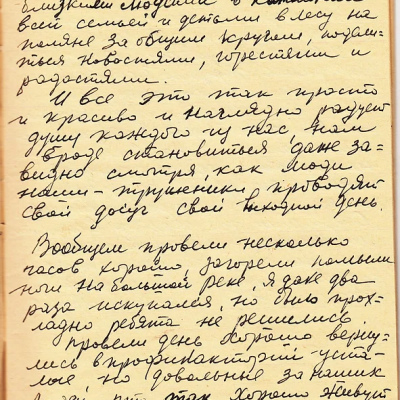 близкими людьми о
всей семьей и детьми в лесу на
поляне за общим кругом,подели-
ться новостями, горестями и
радостями.
И все это так просто
и красиво и наглядно радует
душу каждого из нас, нам
вроде становиться даже за-
видно смотря, как люди
наши - труженики проводят
свой досуг свой выходной день.
Вообщем провели несколько
часов хорошо, загорели помыли
ноги на большой реке. Я даже два
раза искупался, но было прох-
ладно ребята не решились
провели день хорошо верну-
лись в профилакторий уста-
лые, но довольные за наших
что так хорошо живут